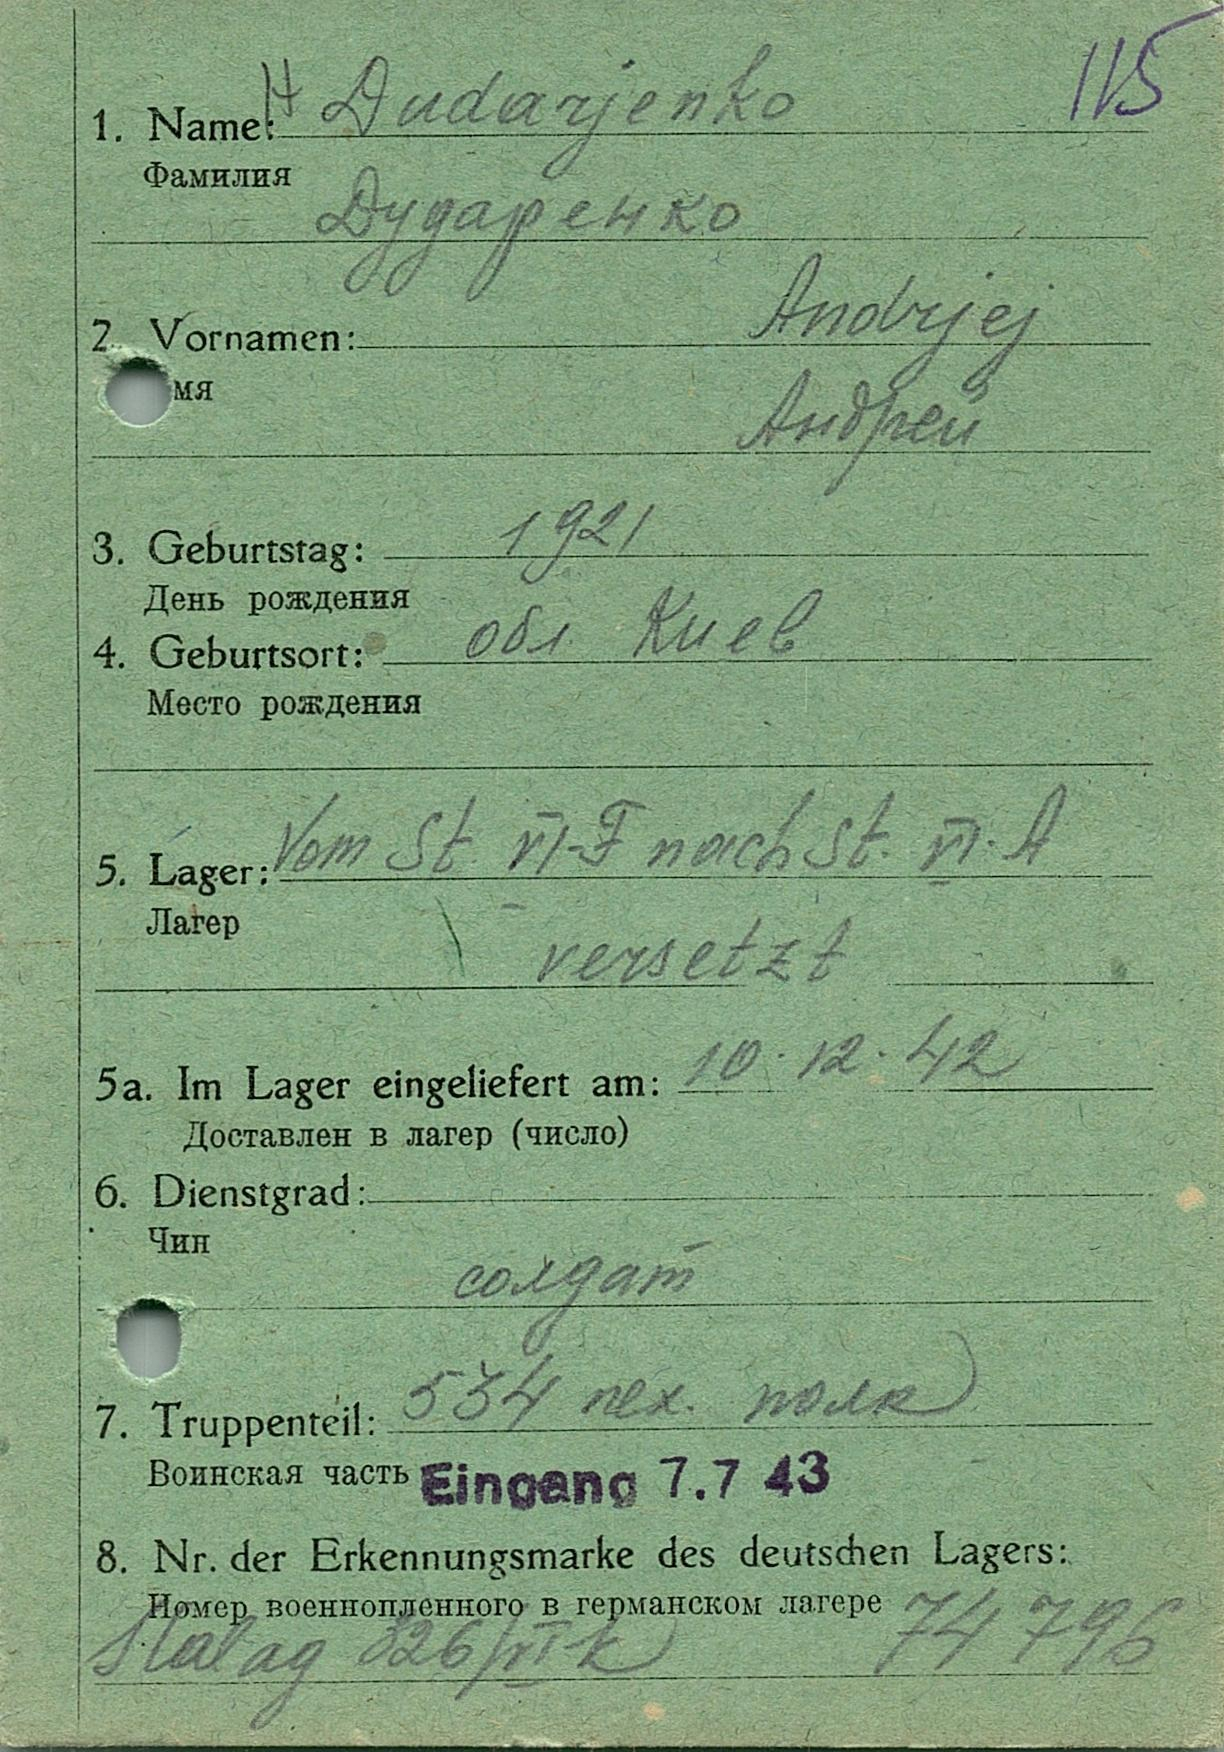 115
1. Name: Dudarjenko
Фамилия
Дударенко
2. Vornamen: Andrjej
мя
Андрей
3. Geburtstag: 1921
День рождения
4. Geburtsort: обл. Киев
Место рождения
5. Lager: Vom St. VI-F nach St. VI-A
Лагер
versetzt
5a. Im Lager eingeliefert am: 10.12.42
Доставлен в лагер (число)
6. Dienstgrad:
Чин
солдат
7. Truppenteil: 534 пех. полк
Воинская часть Eingang 7.7 43
8. Nr. der Erkennungsmarke des deutschen Lagers:
Номер военнопленного в германском лагере
Stalag 326/VI k 74796